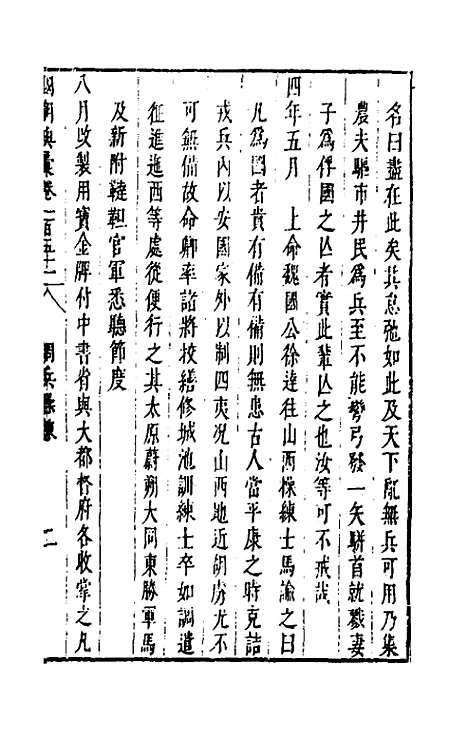 名曰盡在此矣其怠弛如此及天下亂無兵可用乃集
農夫驅市井民為兵至不能彎弓發一矢駢首就戮妻
子為俘國之亡者實此輩亡之也汝等可不戒哉
四年五月　上命魏國公徐達往山西操練士馬諭之曰
凡為國者貴有備有備則無患古人當平康之時克詰
戎兵內以安國家外以制四夷况山西地近胡虜尤不
可無備故命卿率諸將校繕修城池訓練士卒如調遣
征進迤西等處從便行之其太原蔚朔大同東勝軍馬
及新附韃靼官軍悉聽節度
八月改製用寶金牌付中書省與大都督府各收掌之凡
國朝典彙卷一百五十二　閱兵操練　二